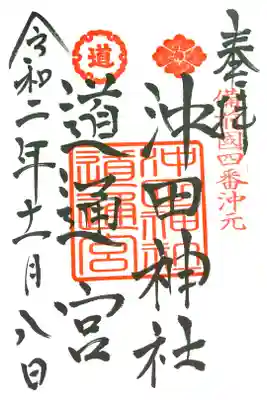 奉拝
備前國四番沖元
沖田神社
道通宮
沖田神社
道通宮
道
令和二年十一月八日